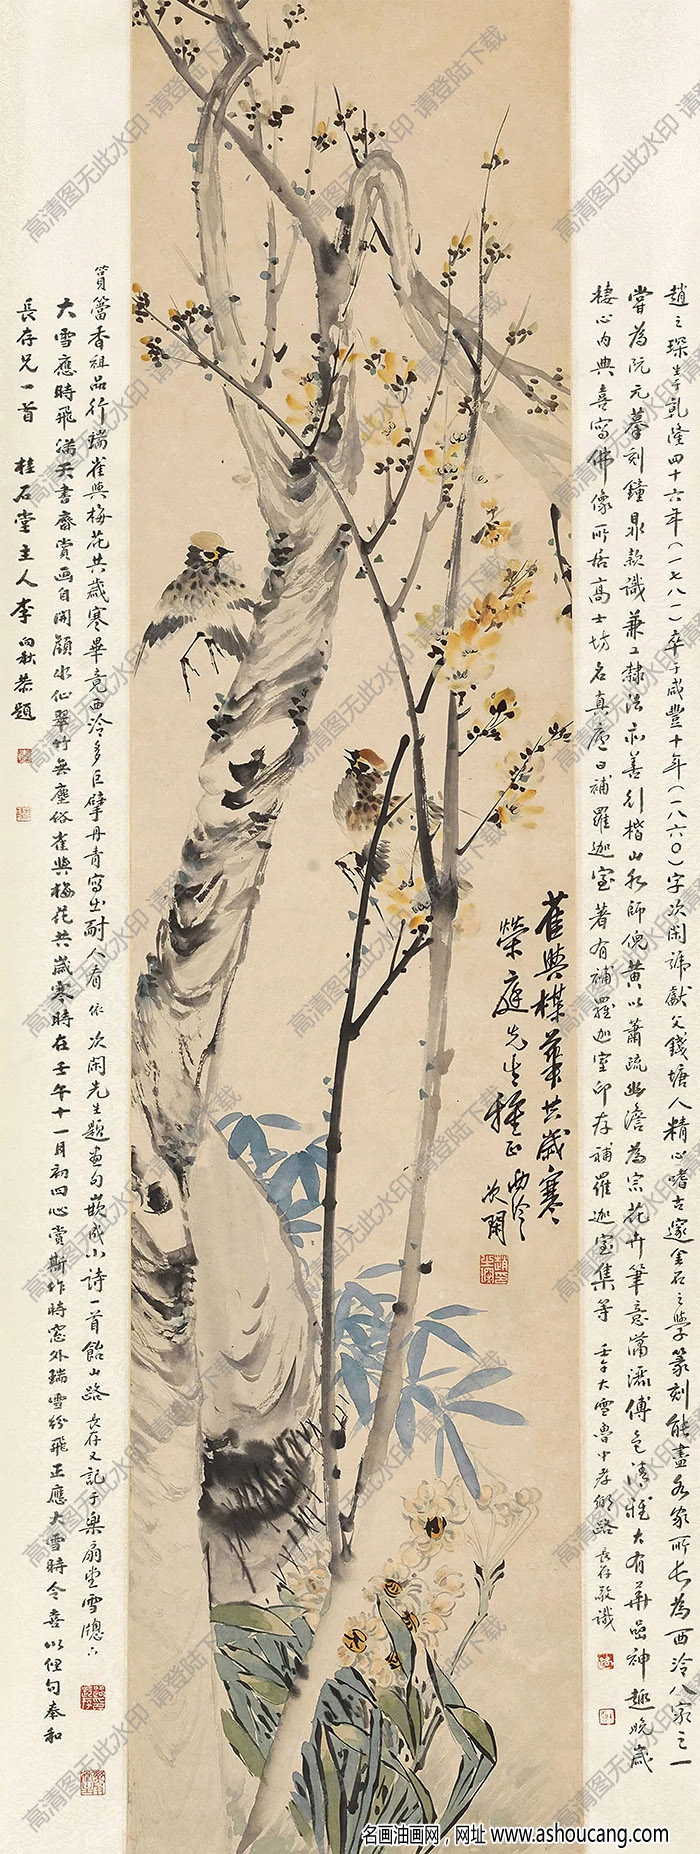 趙之琛生于乾隆四十六年(一七八一)卒于咸豐十年(一八六〇)字次閑號獻父錢塘人精心嗜古邃金石之學篆刻能盡各家所長為西泠八家之一
嘗為阮元摹刻鐘鼎款識兼工隸法亦善行楷山水師倪黃以蕭疏幽澹為宗花卉筆意瀟灑傅色清雅大有華嵒神趣晚歲
棲心內典喜寫佛像所居高士坊名真廬曰補羅迦室著有補羅迦室印存補羅迦室集等 壬午大雪魯中孝鄉路長存敬識
雀與楳華共歲寒
榮庭先生雅正 西泠
次閑
篔簹香祖品行端雀與梅花共歲寒畢竟西泠多巨擘丹青寫出耐人看 依次閑先生題畫句嵌成小詩一首飴山路長存又記于樂扇堂雪牕下
大雪應時飛滿天書齋賞畫自開顏水仙翠竹無塵俗雀與梅花共歲寒時在壬午十一月初四心賞斯作時窓外瑞雪紛飛正應大雪時令喜以俚句奉和
長存兄一首 桂石堂主人李向秋恭題
高清图无此水印 请登陆下载
名画油画网，网址 www.ashoucang.com